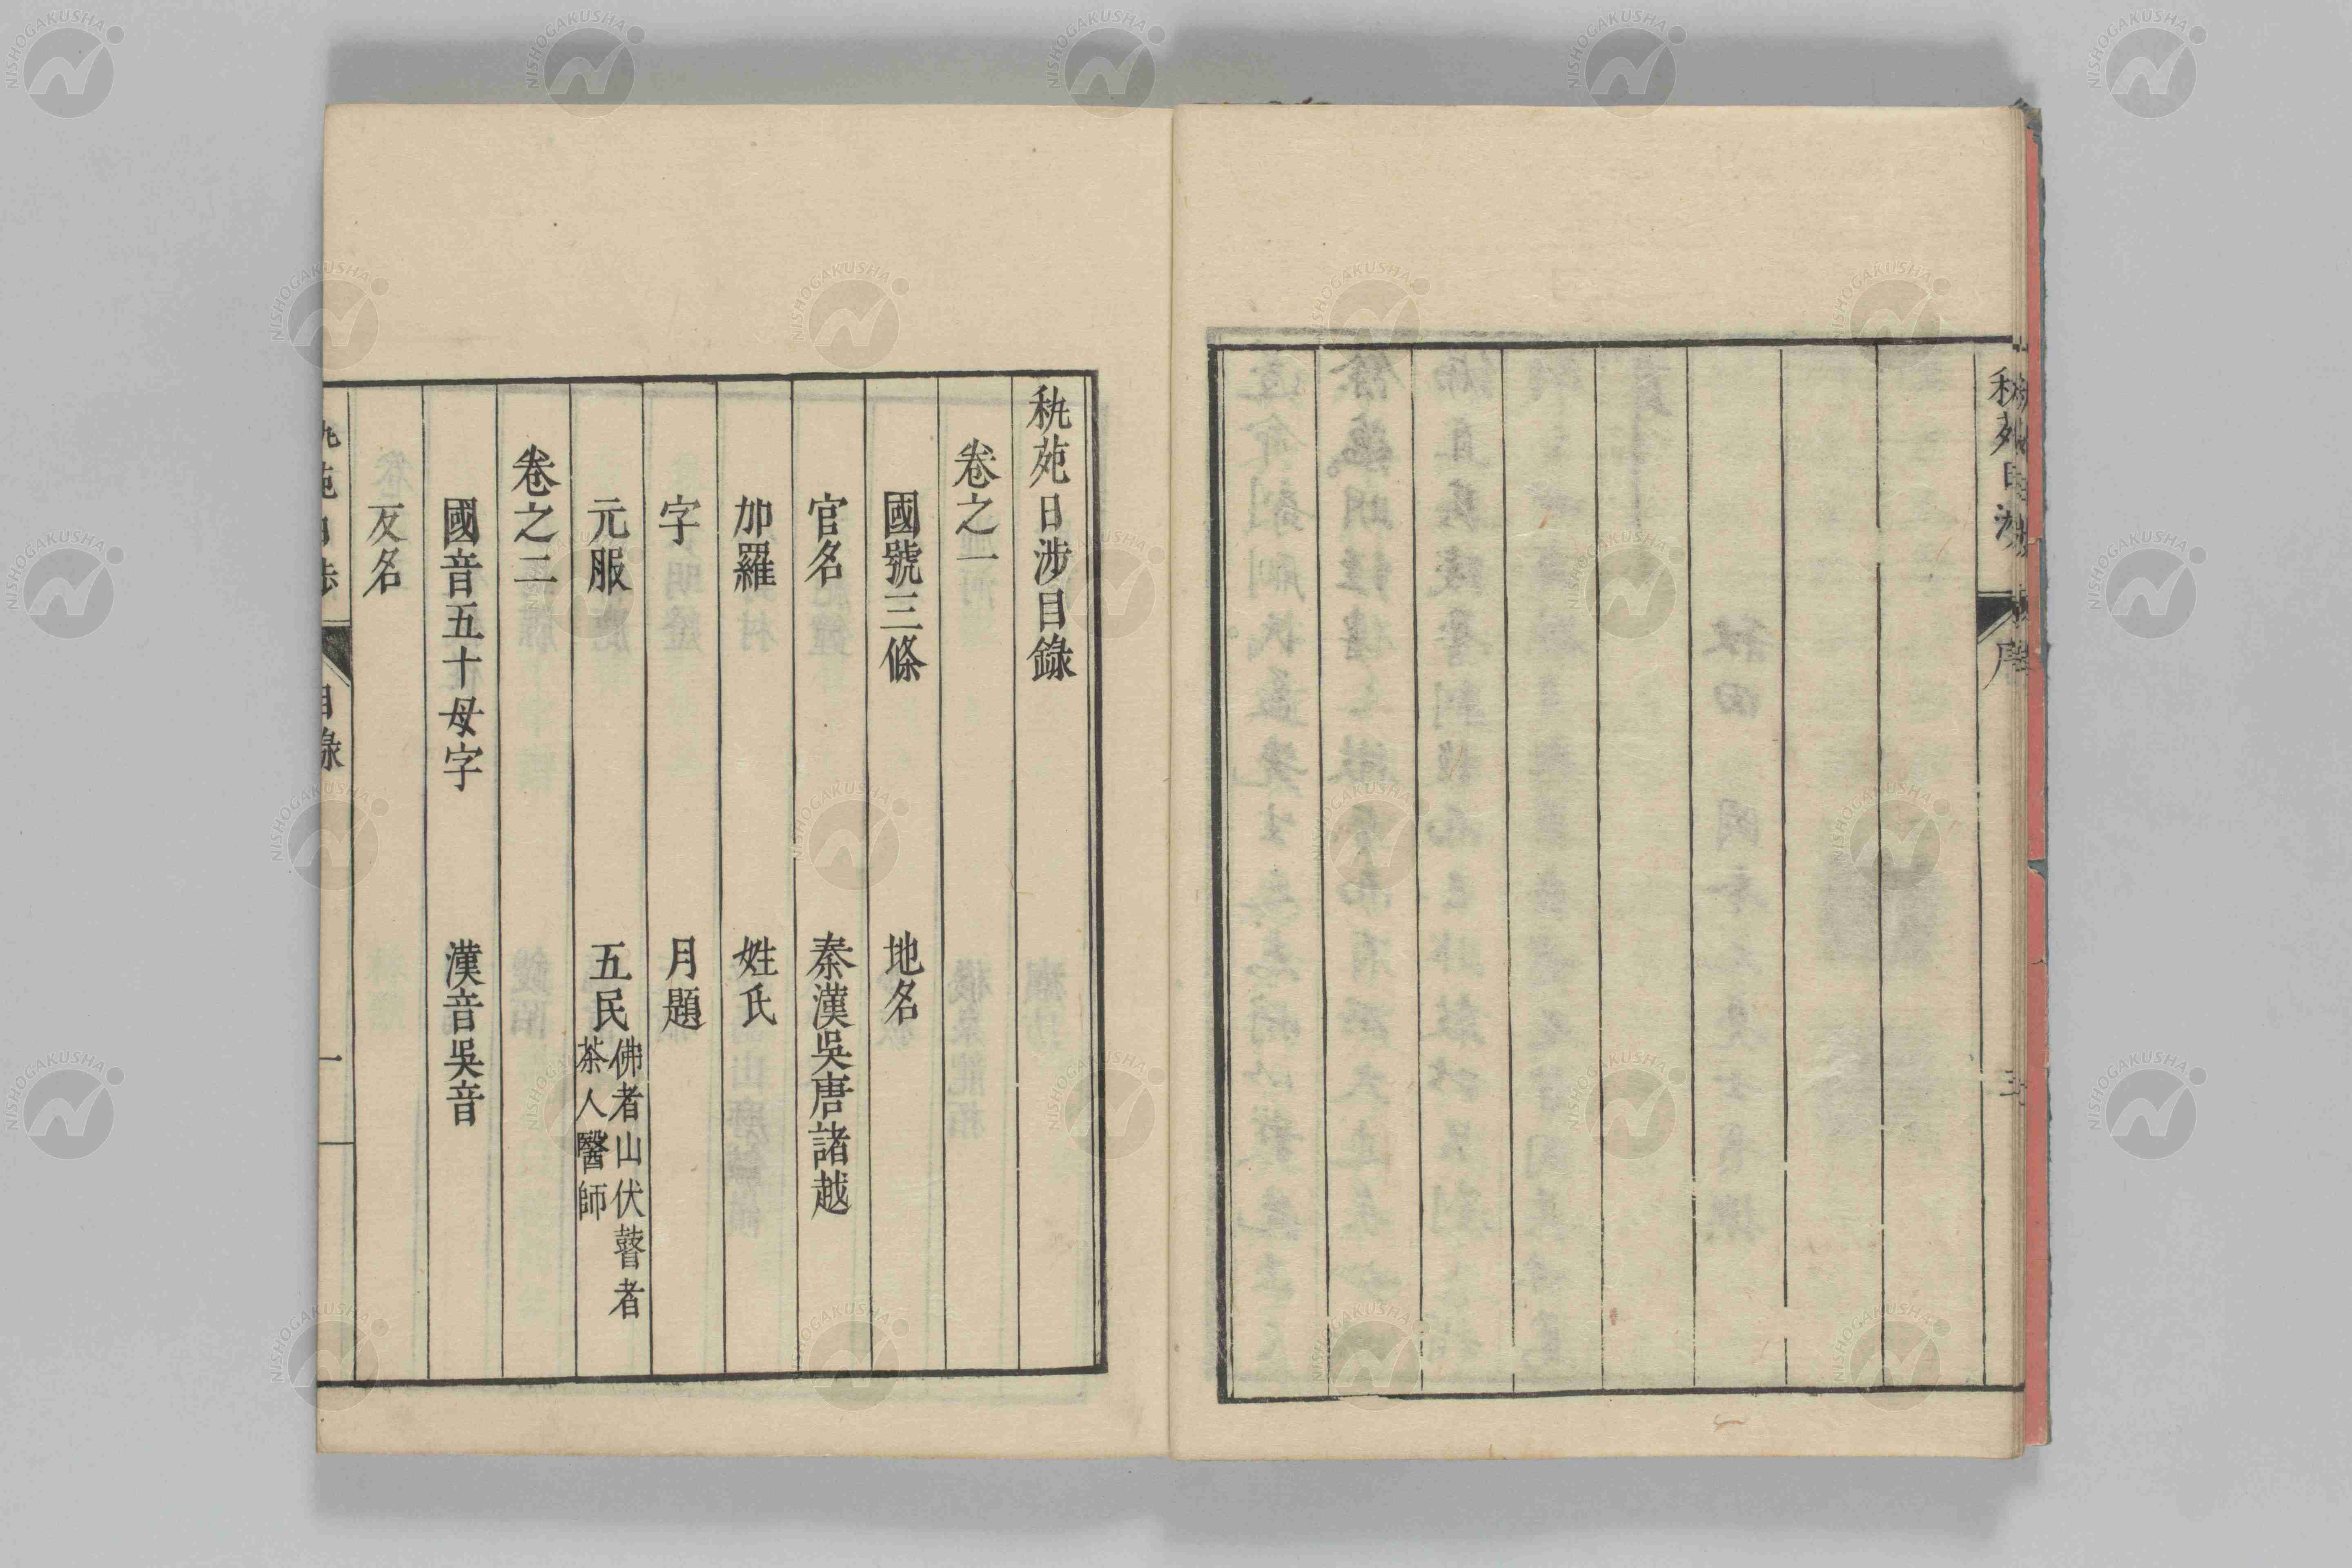 秇苑日涉目錄
卷之一
國號三條 地名
官名 秦漢吳唐諸越
加羅 姓氏
字 月題
元服 五民 佛者山伏瞽者
茶人醫師
卷之二
國音五十母字 漢音吳音
反名
目錄
一
NISHOGAKUSHA